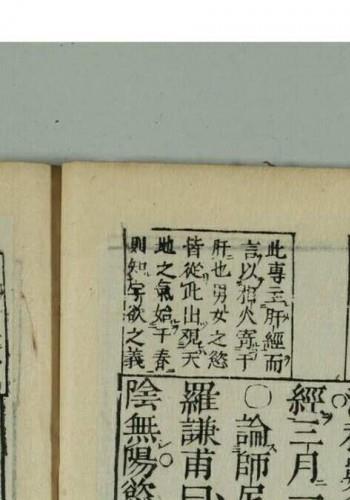 此專主肝經而
言以相火寄于
肝也男女之慾
皆從此出現天
地之氣始于春
則知字欲之義
經三月
〇論師
羅謙甫曰
陰無陽